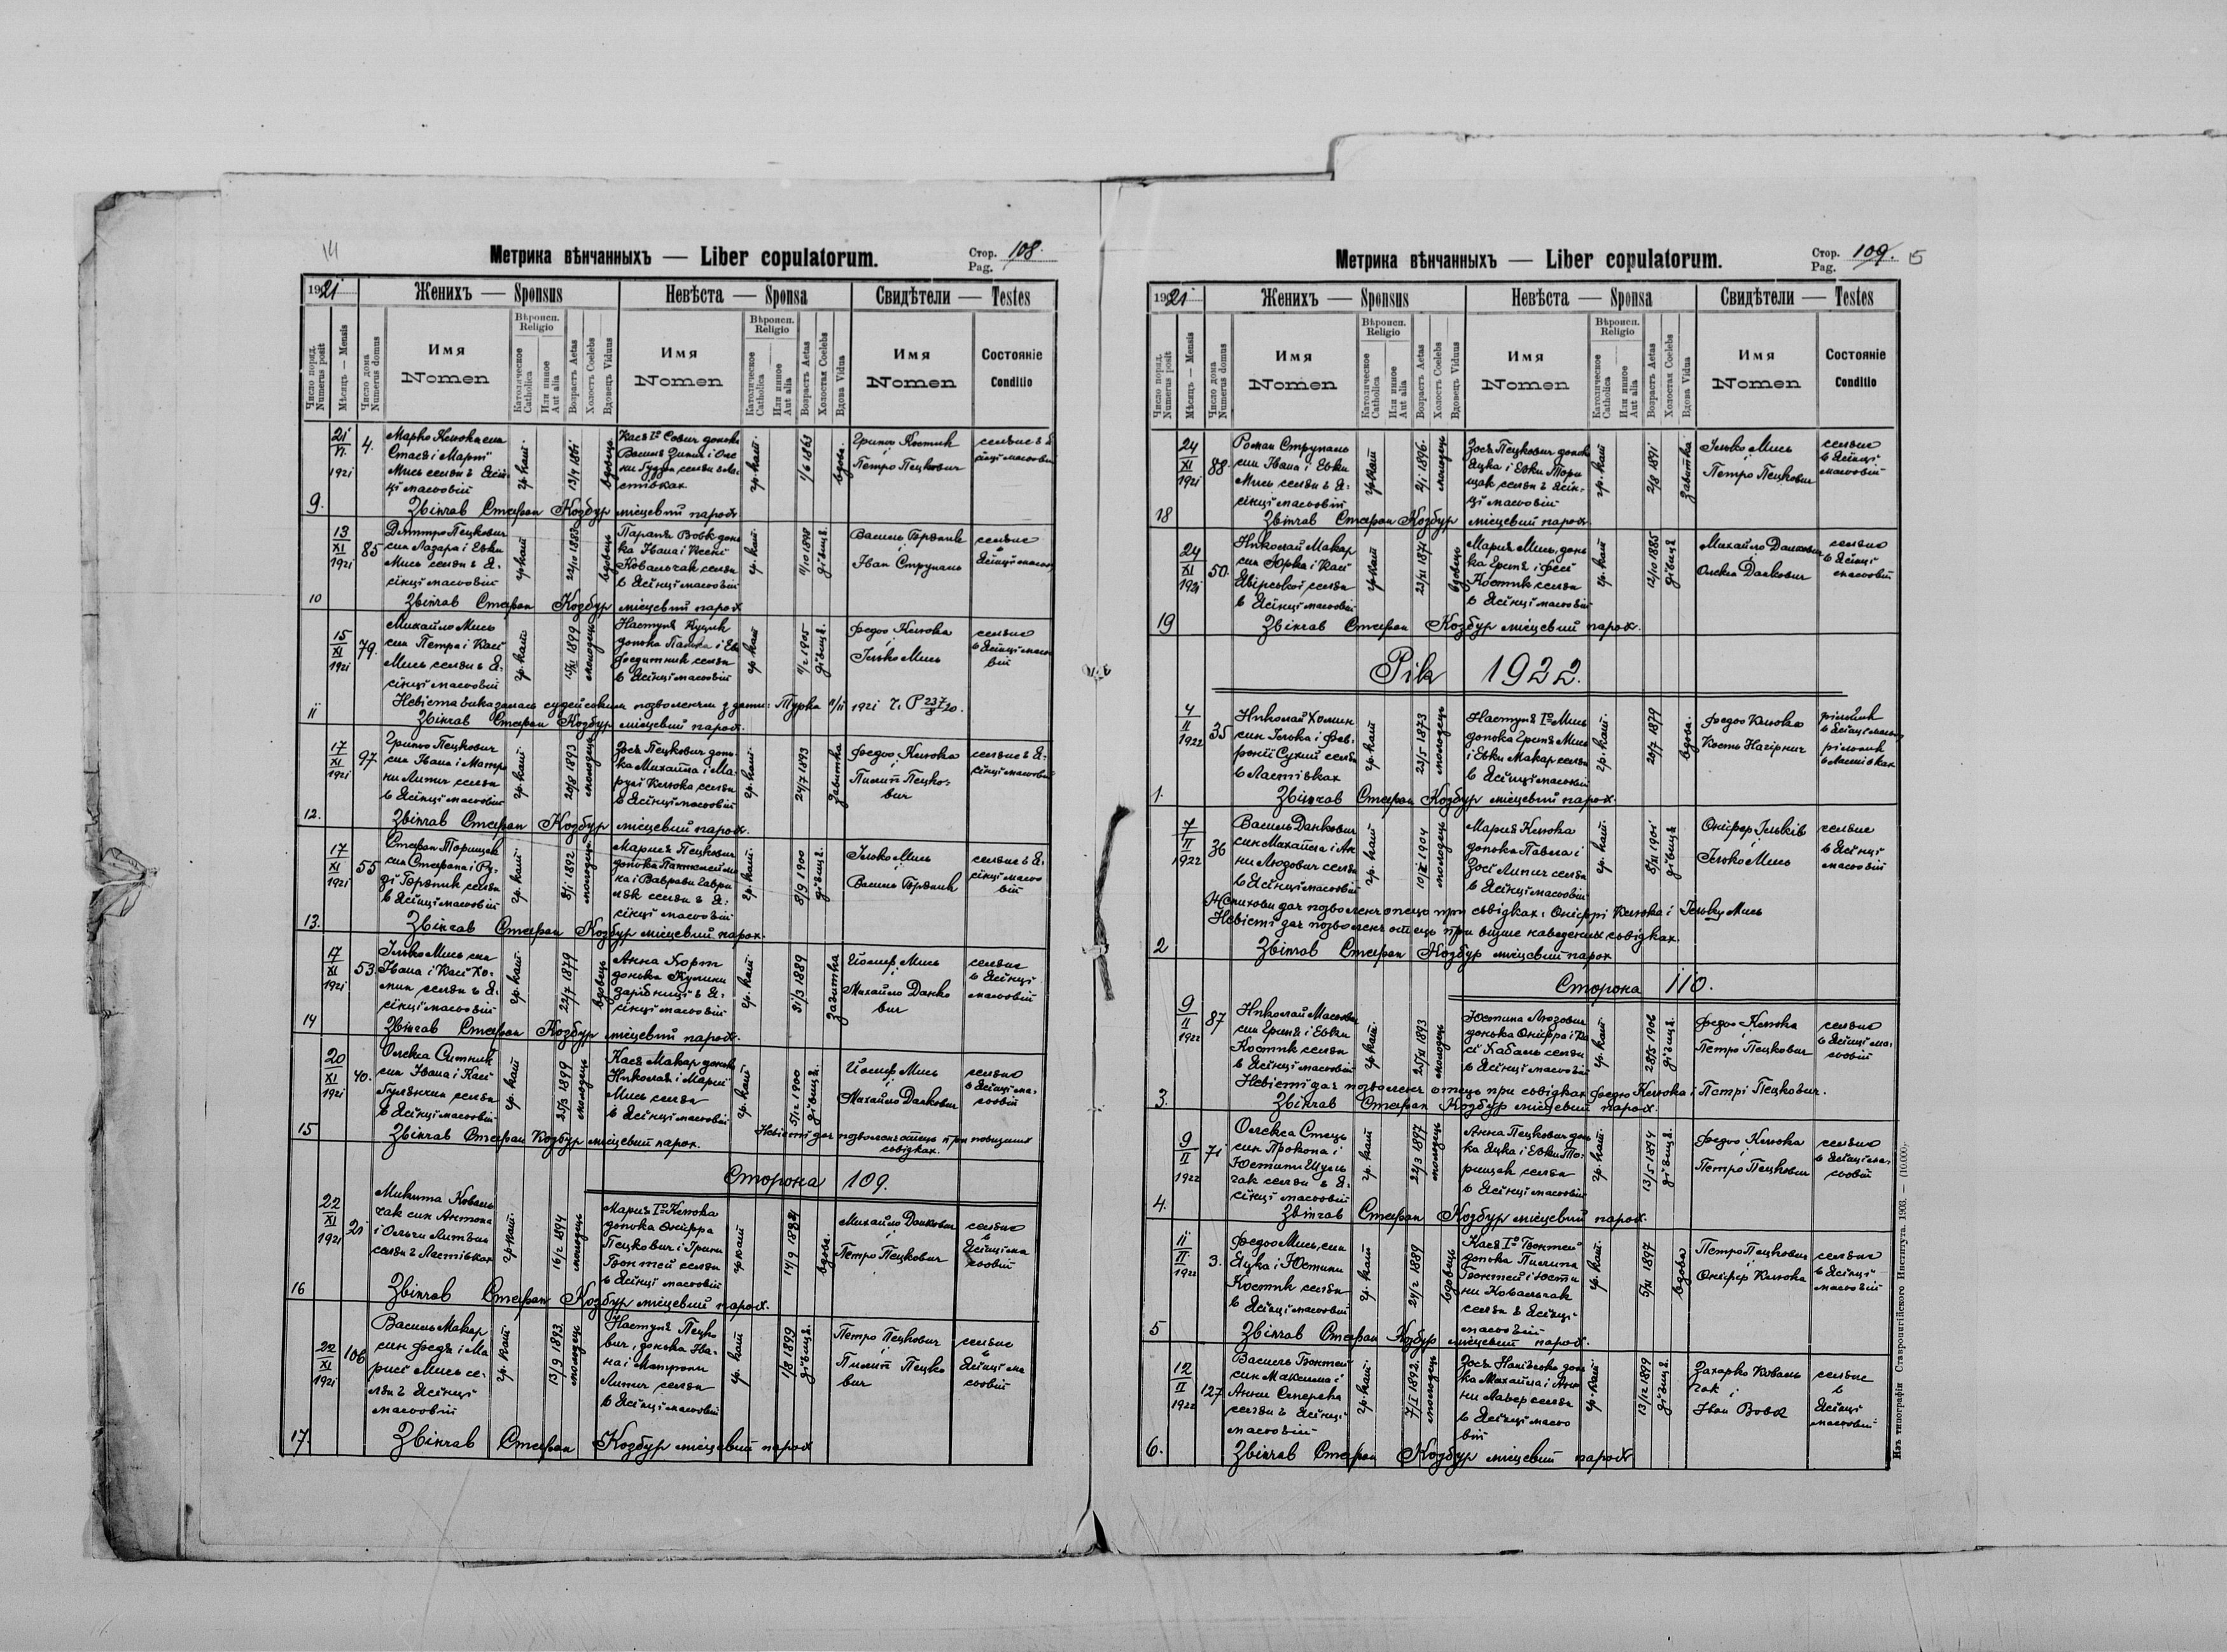 14
Метрика вѣнчанныхъ — Liber copulatorum.
Стор. 108.
Pag.
1921
Женихъ — Sponsus
Невѣста — Sponsa
Свидѣтели — Testes
Число поряд.
Numerus posit
Мѣсяцъ — Mensis
Число дома
Numerus domus
Имя
Nomen
Вѣроисп.
Religio
Католическое
Catholica
Или инное
Aut alia
Возрастъ Aetas
Холостъ Coelebs
Вдовецъ Viduus
Имя
Nomen
Вѣроисп.
Religio
Католическое
Catholica
Или инное
Aut alia
Возрастъ Aetas
Холостая Coelebs
Вдова Vidua
Имя
Nomen
Состояніе
Conditio
9. 21/VI 1921 4.
Марко Кельока син
Стася і Марії
Мись селян в Ясін
ці масьовій
гр. кат. вдовець
Василя
селян в Ла
стівках
гр. кат. 1/6 1863 вдова.
Гринь Костик
і
Петро Пецкович
Звінчав Стефан Козбур місцевий парох
10 13/XI 1921 85
Дмитро Пецкович
син Лазара і Евки
Мись селян в Я-
сінці масьовій
гр. кат. 22/10 1883 вдовець
Параня Вовк донь
ка Івана і Ксені
Ковальчак селян
в Ясінці масьовій
гр. кат. 1/10 1898 дівиця.
Василь
і
Іван Струпань
селяне
в
Ясінці масьов
Звінчав Стефан Козбур місцевий парох
11 15/XI 1921 79.
Михайло Мись
син Петра і Касі
Мись селян в Я-
сінці масьовій
гр. кат. 1899 молодець
Настуня Куцик
донька
селян
в Ясінці масьовій
гр. кат. 1/2 1905 дівиця.
Федьо Кельока
і
Ілько Мись
селяне
в Ясінці масьо
вій
Невіста виказалась судейським позволенєм з дати: Турка 1921
Звінчав Стефан Козбур місцевий парох.
12. 17/XI 1921 97
Гриньо Пецкович
син Івана і Матро
ни Литич селян
в Ясінці масьовій
гр. кат. 20/8 1893 молодець
Зося Пецкович донь
ка Михайла і Ма-
русі Кельока селян
в Ясінці масьовій
гр. кат. 24/7 1893 завитка
Федьо Кельока
і
Пилип Пецко-
вич
селяне в Я-
сінці масьовій
Звінчав Стефан Козбур місцевий парох.
13. 17/XI 1921 55
Стефан Торищак
син Стефана і Ру-
зі селян
в Ясінці масьовій
гр. кат. 8/1 1892 молодець
Мария Пецкович
донька
ка і Варвари Гаври
ляк селян в Я-
сінці масьовій
гр. кат. 8/9 1900 дівиця.
Ілько Мись
і
Василь
селяне в Я-
сінці масьо
вій
Звінчав Стефан Козбур місцевий парох.
14 17/XI 1921 53.
Ілько Мись син
Івана і Касі Хо-
мин селян в Я-
сінці масьовій
гр. кат. 22/7 1879 вдовець
Анна Хорт
донька Кулини
зарібниці в Я-
сінці масьовій
гр. кат. 31/3 1889 завитка
Йосиф Мись
і
Михайло Данко
вич
селяне
в Ясінці
масьовій
Звінчав Стефан Козбур місцевий парох.
15 20/XI 1921 40.
Олекса Ситник
син Івана і Касі
селян
в Ясінці масьовій
гр. кат. 25/3 1899 молодець
Кася Макар донька
Николая і Марії
Мись селян
в Ясінці масьовій
гр. кат. 5/12 1900 дівиця.
Йосиф Мись
і
Михайло Данкович
селяне
в Ясінці ма-
сьовій
Звінчав Стефан Козбур місцевий парох.
Невісті дає позволенє отець при повищих
свідках.
Сторона 109.
16 22/XI 1921 21
Микита Коваль
чак син Антона
і Ольги
селян в Ластівках
гр. кат. 16/2 1894 молодець
Мария Iº Кельока
донька Онифра
Пецкович і Ірини
Бонтей селян
в Ясінці масьовій
гр. кат. 14/9 1884 вдова.
Михайло Данкович
і
Петро Пецкович
селяне
в
Ясінці ма
сьовій
Звінчав Стефан Козбур місцевий парох.
17. 22/XI 1921 106
Василь Макар
син Федя і Ма
рисі Мись се-
лян в Ясінці
масьовій
гр. кат. 13/9 1893. молодець
Настуня Пецко
вич, донька Іва-
на і Матрони
Литич селян
в Ясінці масьовій
гр. кат. 1/3 1899 дівиця.
Петро Пецкович
і
Пилип Пецко
вич
селяне
в
Ясінці ма
сьовій
Звінчав Стефан Козбур місцевий парох
Метрика вѣнчанныхъ — Liber copulatorum.
Стор. 109. 15
Pag.
1921
Женихъ — Sponsus
Невѣста — Sponsa
Свидѣтели — Testes
Число поряд.
Numerus posit
Мѣсяцъ — Mensis
Число дома
Numerus domus
Имя
Nomen
Вѣроисп.
Religio
Католическое
Catholica
Или инное
Aut alia
Возрастъ Aetas
Холостъ Coelebs
Вдовецъ Viduus
Имя
Nomen
Вѣроисп.
Religio
Католическое
Catholica
Или инное
Aut alia
Возрастъ Aetas
Холостая Coelebs
Вдова Vidua
Имя
Nomen
Состояніе
Conditio
18 24/XI 1921 88.
Роман Струпань
син Івана і Евки
Мись селян в Я-
сінці масьовій
гр. кат. 2/1 1896. молодець
Зося Пецкович донька
Яцка і Евки Тори
щак селян в Ясін-
ці масьовій
гр. кат. 2/8 1891 завитка
Ілько Мись
і
Петро Пецкович
селяне
в Ясінці
масьовій
Звінчав Стефан Козбур місцевий парох.
19 24/XI 1921 50.
Николай Макар
син Юрка і Касі
Явірської селян
в Ясінці масьовій
гр. кат. 23/XI 1871 вдовець
Мария Мись, донь
ка Гриня і Фесі
Костик селян
в Ясінці масьовій
гр. кат. 12/10 1885 дівиця
Михайло Данкович
і
Олекса Данкович
селяне
в Ясінці
масьовій
Звінчав Стефан Козбур місцевий парох.
Рік 1922.
1. 4/II 1922 35
Николай Хомин
син Ілька і Фев-
ронії Сухий селян
в Ластівках
гр. кат. 23/5 1873 молодець
Настуня Iº Мись
донька Гриня Мись
і Евки Макар селян
в Ясінці масьовій
гр. кат. 20/7 1879 вдова.
Федьо Кельока
і
Кость Нагірнич
рільник
в Ясінці масьов
рільник
в Ластівках
Звінчав Стефан Козбур місцевий парох.
2 7/II 1922 36
Василь Данкович
син Михайла і Ан
ни Людович селян
в Ясінці масьовій
гр. кат. 1904 молодець
Мария Кельока
донька Павла і
Зосі Литич селян
в Ясінці масьовій
гр. кат. 8/XI 1901 дівиця
Онифер Ільків
і
Ілько Мись
селяне
в Ясінці
масьовій
Женихови дає позволенє отець при свідках: Онифрі Кельока і Ільку Мись
Невісті дає позволенє отець при више наведених свідках.
Звінчав Стефан Козбур місцевий парох
Сторона 110.
3. 9/II 1922 87
Николай
син Гриня і Евки
Костик селян
в Ясінці масьовій
гр. кат. 25/XI 1893 молодець
Юстина Людович
донька Онифра і Ка
сі Кабаль селян
в Ясінці масьовій
гр. кат. 28/5 1906 дівиця.
Федьо Кельока
і
Петро Пецкович
селяне
в Ясінці ма-
сьовій
Невісті дає позволенє отець при свідках Федю Кельока і Петрі Пецкович.
Звінчав Стефан Козбур місцевий парох.
4. 9/II 1922 71
Олекса Стець
син Прокопа і
Юстини Шуль
гак селян в Я-
сінці масьовій
гр. кат. 22/3 1897 молодець
Анна Пецкович донь
ка Яцка і Евки То-
рищак селян
в Ясінці масьовій
гр. кат. 13/5 1894 дівиця.
Федьо Кельока
і
Петро Пецкович
селяне
в Ясінці ма-
сьовій
Звінчав Стефан Козбур місцевий парох.
5 11/II 1922 3.
Федьо Мись, син
Яцка і Юстини
Костик селян
в Ясінці масьовій
гр. кат. 24/2 1889 вдовець
Кася Iº Бонтей
донька Пилипа
Бонтей і Юсти
ни Ковальчак
селян в Ясінці
масьовій
гр. кат. 5/XI 1897 вдова
Петро Пецкович
і
Онифер Кельока
селяне
в Ясінці
масьовій
Звінчав Стефан Козбур місцевий парох.
6. 12/II 1922 127
Василь Бонтей
син Максима і
Анни
селян в Ясінці
масьовій
гр. кат. 7/I 1892. молодець
Зося донь
ка Михайла і Ан
ни селян
в Ясінці масьо
вій
гр. кат. 13/12 1899 дівиця.
Захарко Коваль
чак і
Іван Вовк
селяне
в
Ясінці
масьовій
Звінчав Стефан Козбур місцевий парох
Изъ типографіи Ставропигійского Института. 1908. — (10.000).